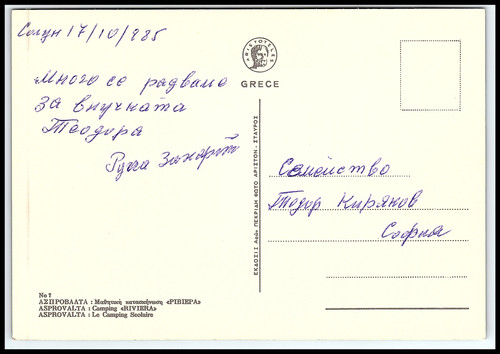 Солун 17/10/985
Много се радваме
За внучката
Теодора
Руша
ARISTOTELES
GRECE
Семейство
Тодор Киряков
София
ΕΚΔΟΣΙΣ Αφοι ΠΕΚΡΙΔΗ ΦΩΤΟ ΑΡΙΣΤΟΝ - ΣΤΑΥΡΟΣ
No 7
ΑΣΠΡΟΒΑΛΤΑ : Μαθητική κατασκήνωση «ΡΙΒΙΕΡΑ»
ASPROVALTA : Camping «RIVIERA»
ASPROVALTA : Le Camping Scolaire